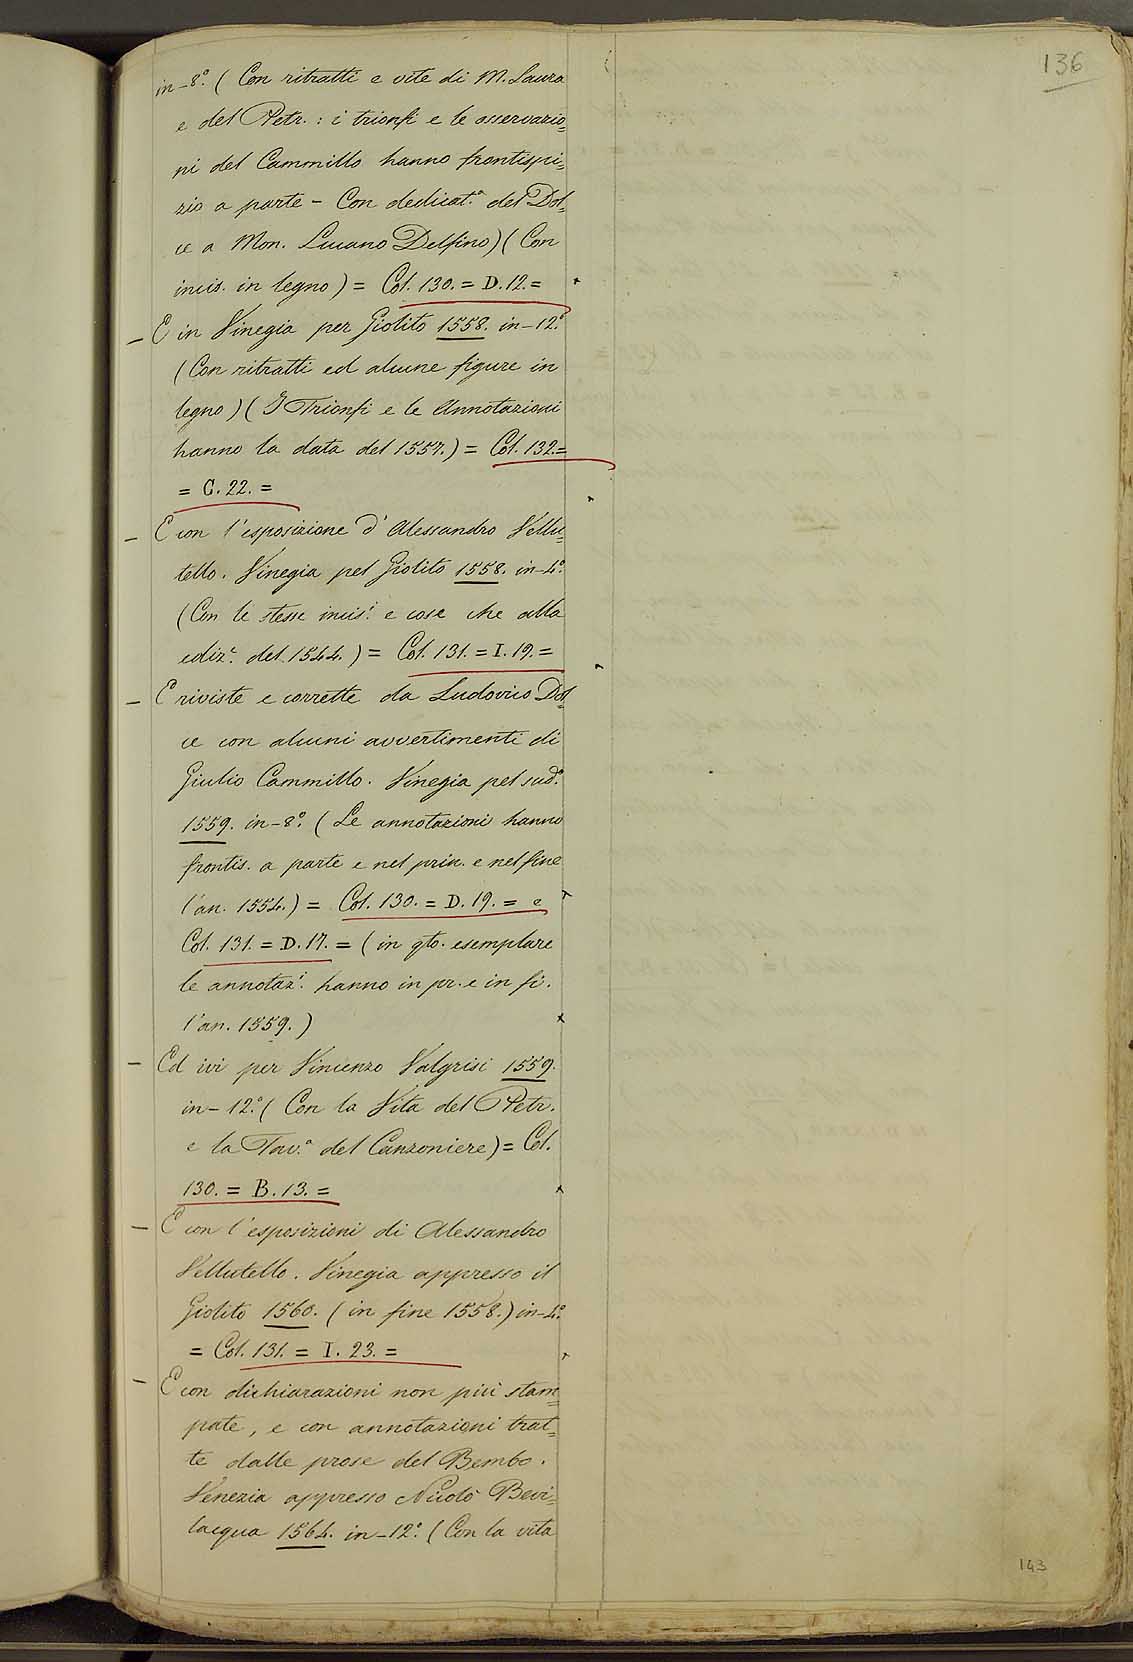 136
in-8.° (Con ritratti e vite di M. Laura
e del Petr.: i trionfi e le osservazio=
ni del Cammillo hanno frontispi=
zio a parte - Con dedicat.ª del Dol=
ce a Mon. Luciano Delfino) (Con
incis. in legno) = Col. 130. = D. 12. =
— E in Vinegia per Giolito 1558. in-12.°
(Con ritratti ed alcune figure in
legno) (I Trionfi e le Annotazioni
hanno la data del 1557.) = Col. 132. =
= C. 22. =
— E con l'esposizione d'Alessandro Vellu=
tello. Vinegia pel Giolito 1558. in-4.°
(Con le stesse incis.i e cose che alla
ediz.e del 1544.) = Col. 131. = I. 19. =
— E riviste e corrette da Ludovico Dol=
ce con alcuni avvertimenti di
Giulio Cammillo. Vinegia pel sud.°
1559. in-8.° (Le annotazioni hanno
frontis. a parte e nel prin. e nel fine
l'an. 1554.) = Col. 130. = D. 19. = e
Col. 131. = D. 17. = (in qto. esemplare
le annotaz.i hanno in pr. e in fi.
l'an. 1559.)
— Ed ivi per Vincenzo Valgrisi 1559.
in-12.° (Con la Vita del Petr.
e la Tav.ª del Canzoniere) = Col.
130. = B. 13. =
— E con l'esposizioni di Alessandro
Vellutello. Vinegia appresso il
Giolito 1560. (in fine 1558.) in-4.°
= Col. 131. = I. 23. =
— E con dichiarazioni non più stam=
pate, e con annotazioni trat=
te dalle prose del Bembo.
Venezia appresso Nicolò Bevi=
lacqua 1564. in-12.° (Con la vita
143